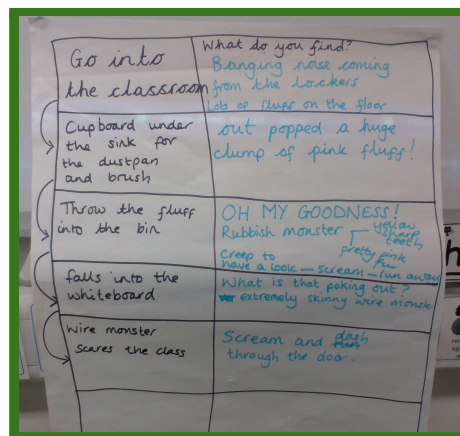 Go into
the classroom
What do you find?
Banging noise coming
from the lockers
Lots of fluff on the floor
Cupboard under
the sink for
the dustpan
and brush
out popped a huge
clump of pink fluff!
Throw the fluff
into the bin
OH MY GOODNESS!
Rubbish monster
yellow
sharp
teeth
pretty pink
fur
Creep to
have a look – scream – run away
falls into the
whiteboard
What is that poking out?
extremely skinny wire monste
Wire monster
scares the class
Scream and dash
through the door.
h